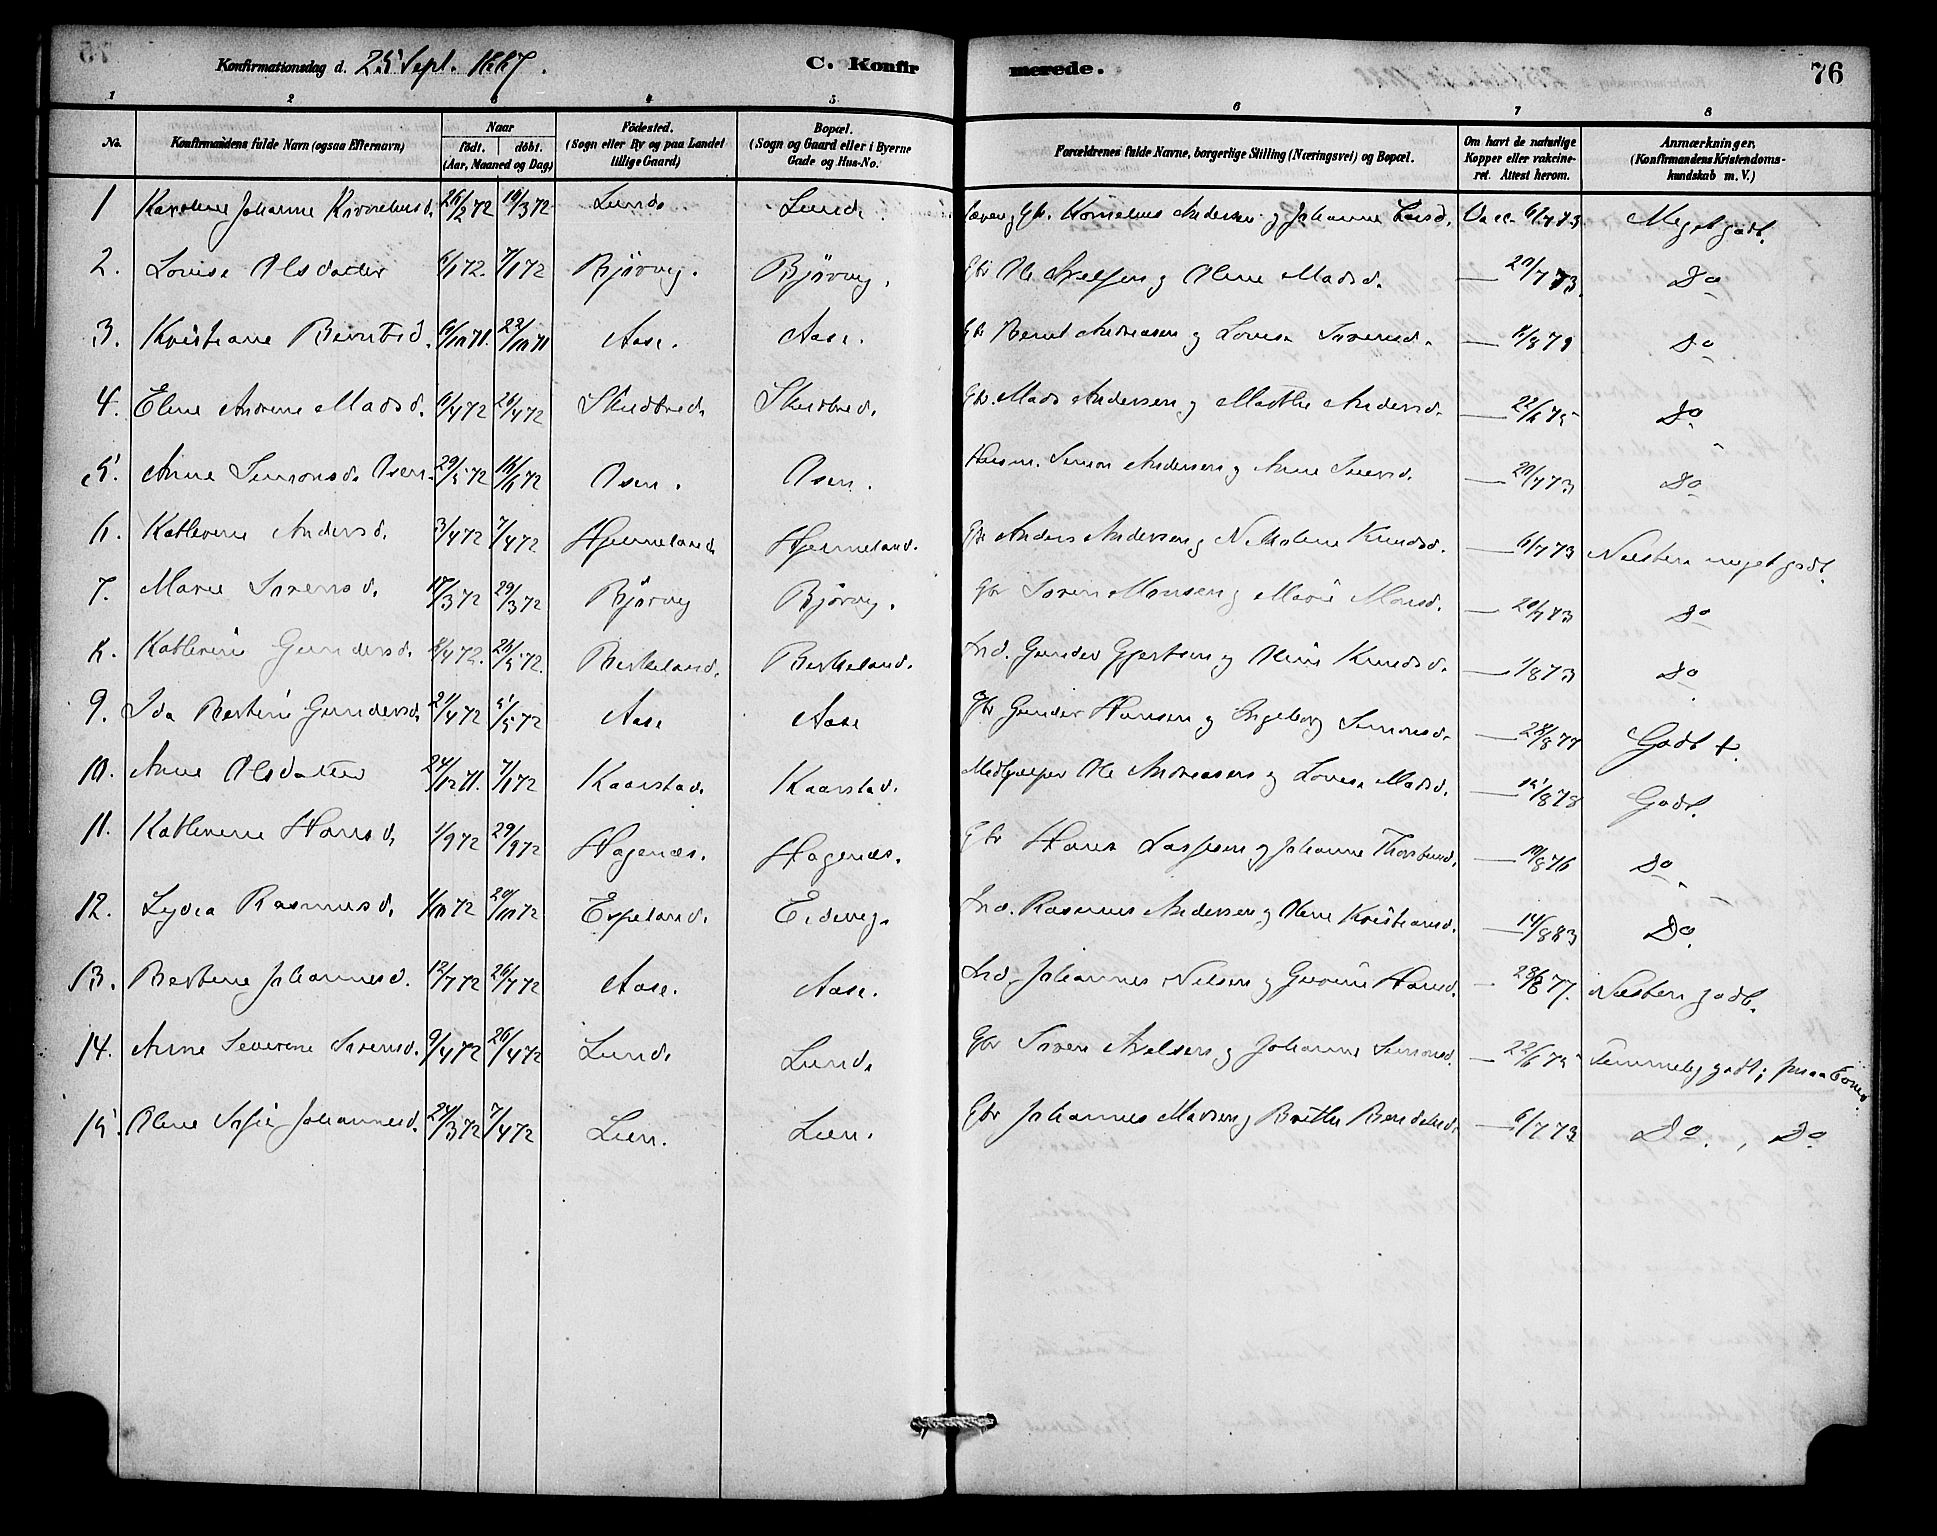 Konfirmationsdag d. 25 Sept. 1887. C. Konfirmerede. 76
1 2 3 4 5 6 7 8
No. Konfirmandens fulde Navn (ogsaa Efternavn) Naar födt. döbt. (Aar, Maaned og Dag) Födested. (Sogn eller By og paa Landet tillige Gaard) Bopæl. (Sogn og Gaard eller i Byerne Gade og Hus-No. Forældrenes fulde Navne, borgerlige Stilling (Næringsvei) og Bopæl. Om havt de naturlige Kopper eller vakcineret. Attest herom. Anmærkninger, (Konfirmandens Kristendomskundskab m. V.)
1 Karoline Johanne Korneliusd. 26/2 72 /3 72 Lund. Lund. Gbr. Kornelius Andersen og Johanne Larsd. Vacc. 6/7 73 Meget godt.
2. Lovise Olsdatter 6/1 72. 7/1 72 Bjørvig. Bjørvig. Gbr Ole Axelsen og Oline Madsd. — 29/7 73. Do
3. Kristiane Berntsd. 6/10 71. 22/10 71 Aase. Aase. Gbr Bernt Andreasen og Lovise Sørensd. — /8 79 Do
4. Eline Andrine Madsd. 6/4 72 26/4 72 Skudbred. Skudbred. Gbr. Mads Andersen og Marthe Andersd. — 22/6 75 Do
5. Anne Simonsd. Osen. 29/5 72 16/6 72 Osen. Osen. Husm. Simon Andersen og Anne Iversd. — 20/7 73 Do
6. Kathrine Andersd. 3/4 72 7/4 72 Hjemeland Hjemeland. Gbr Anders Andersen og Nikoline Knudsd. — 6/7 73 Næsten meget godt.
7. Marie Sørensd. 17/3 72 29/3 72 Bjørvig Bjørvig. Gbr Søren Monsen og Marie Monsd. — 20/7 73 Do
8. Kathrine Gundersd. 8/4 72. 26/5 72. Birkeland. Birkeland. Ind. Gunder Gjertsen og Oline Knudsd. — 1/8 73 Do
9. Ida Bertine Gundersd. 21/4 72 5/5 72 Aase Aase Gbr Gunder Hansen og Ingeborg Simonsd. — 28/8 77 Godt +.
10. Anne Olsdatter 24/12 71. 7/1 72 Kaarstad. Kaarstad. Medhjælper Ole Andreasen og Lovise Madsd. — 15/8 78 Godt.
11. Kathrine Hansd. 1/9 72 29/9 72 Hagenæs. Hagenæs. Gbr Hans Jaspersen og Johanne Thorstensd. — 10/8 76 Do.
12. Lydia Rasmusd. 1/10 72 20/10 72 Espeland. Eidevig. Ind. Rasmus Andersen og Oline Kristiansd. — 14/8 83 Do.
13. Bertine Johannesd. 12/7 72 26/7 72 Aase. Aase. Ind. Johannes Nilsen og Gurine Hansd. — 28/8 77. Næsten godt.
14. Anne Severine Sørensd. 9/4 72 26/4 72 Lund. Lund. Gbr Søren Axelsen og Johanne Simonsd. — 22/6 75 Temmelig godt;
15. Oline Sofie Johannesd. 24/3 72 7/4 72 Lien. Lien. Gbr Johannes Madsen og Berthe Bendiksd. — 6/7 73 Do. , Do